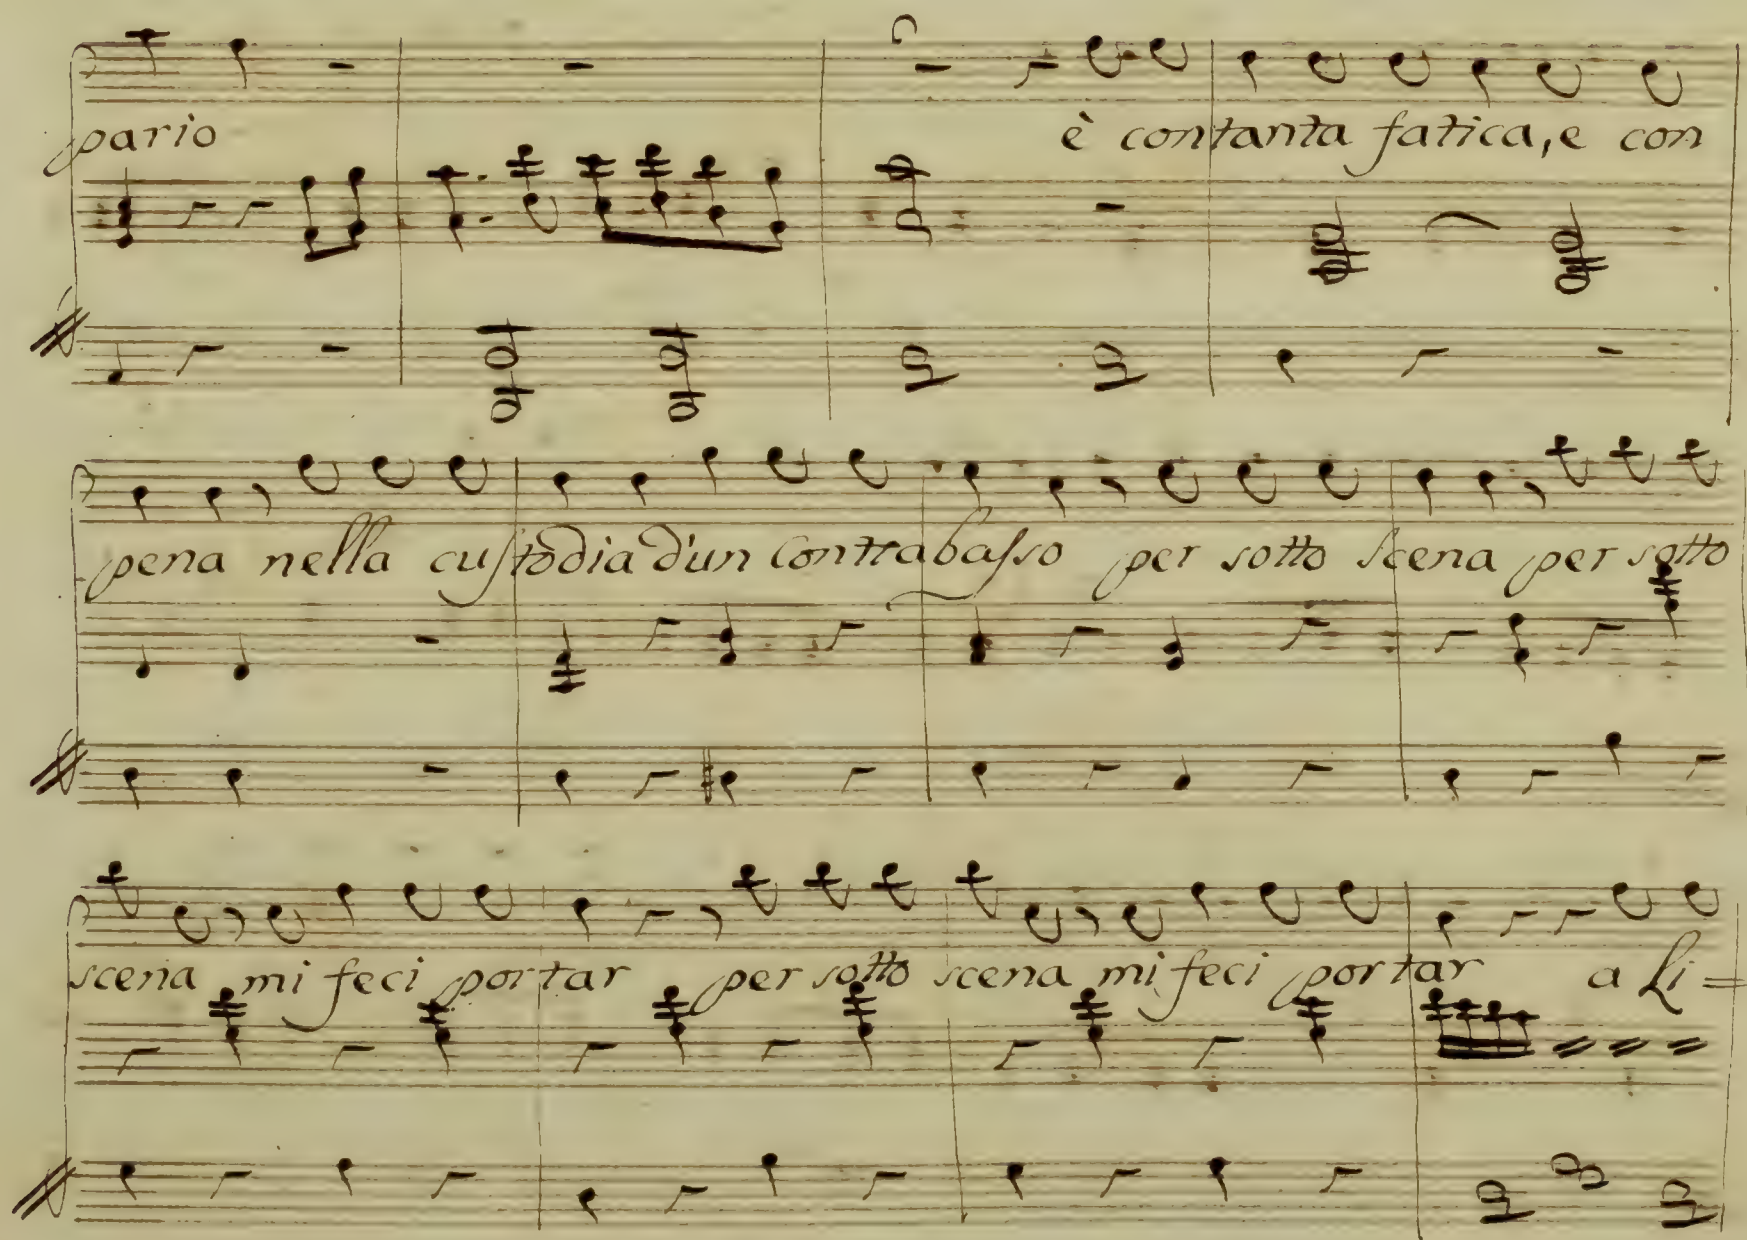 pario è con tanta fatica, e con
pena nella cuſtodia d'un Contrabaſso per sotto scena per sotto
scena mi feci portar per sotto scena mi feci portar a Li=